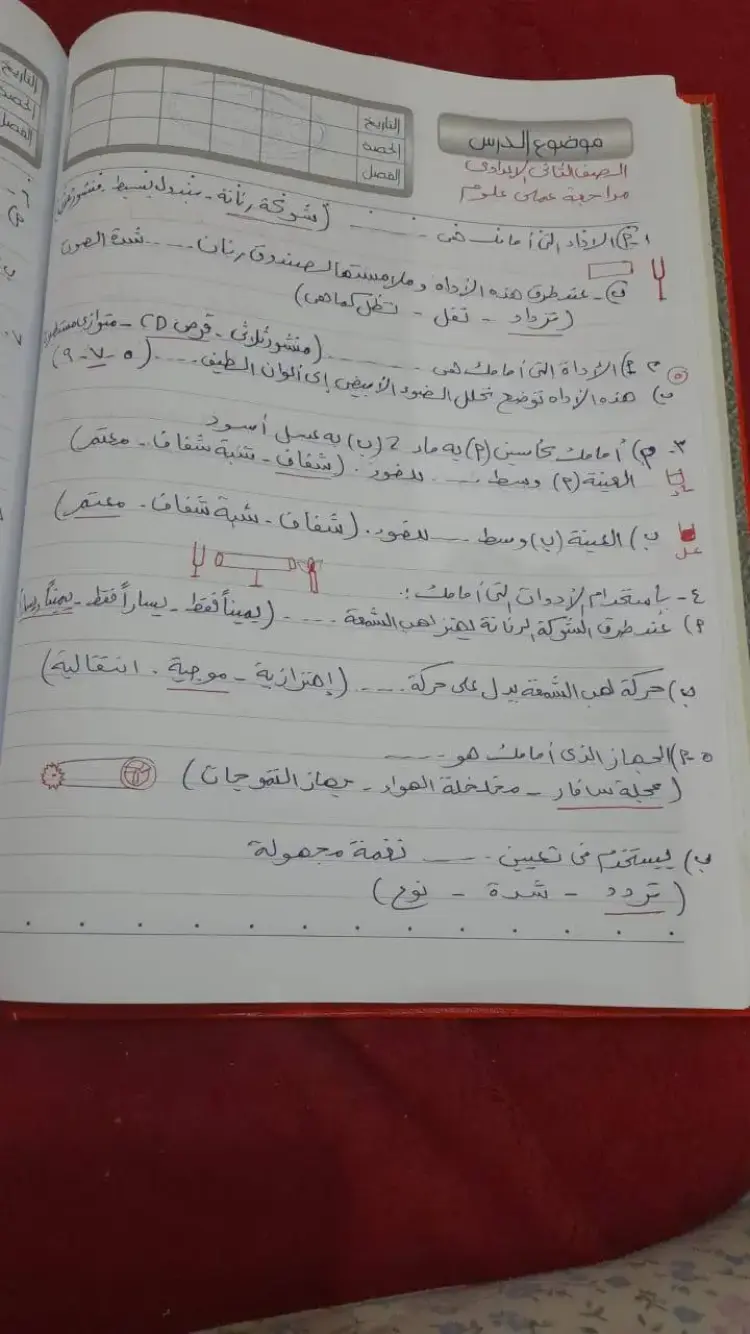 التاريخ
الحصة
الفصل
التاريخ
الحصة
الفصل
موضوع الدرس
الصف الثانى الإعدادى
مراجعة عملى علوم
١- P) الأداه التى أمامك هى ...... (شوكة رنانة - بندول بسيط - منشور
ب) - عند طرق هذه الأداه وملامستها لصندوق رنان ..... شدة الصوت
(تزداد - تقل - تظل كما هى)
٢- P) الأداة التى أمامك هى ...... (منشور ثلاثى - قرص CD - متوازى مستطيلات
ب) هذه الأداه توضح تحلل الضوء الأبيض إلى ألوان الطيف ..... (٥ - ٧ - ٩)
٣- P) أمامك كأسين (P) به ماء 2 (ب) به عسل أسود
العينة (P) وسط ..... للضوء. (شفاف - شبة شفاف - معتم)
ب) العينة (ب) وسط ..... للضوء. (شفاف - شبة شفاف - معتم)
عسل
٤- بإستخدام الأدوات التى أمامك :
P) عند طرق الشوكة الرنانة يهتز لهب الشمعة ..... (يميناً فقط - يساراً فقط - يميناً ويساراً
ب) حركة لهب الشمعة يدل على حركة ..... (إهتزازية - موجية - انتقالية)
٥- P) الجهاز الذى أمامك هو .....
(عجلة سافار - مخلخلة الهواء - جهاز التموجات)
ب) يستخدم فى تعيين ..... نغمة مجهولة
(تردد - شدة - نوع)